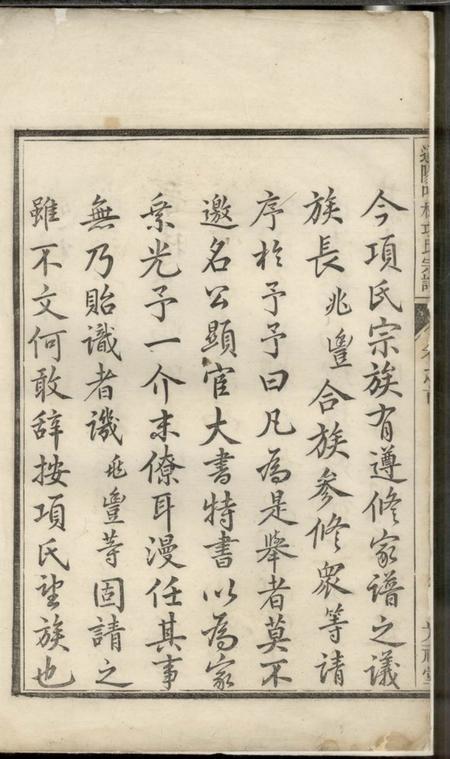 今項氏宗族有遵修家譜之議
族長兆豐合族參修眾等請
序於予予曰凡為是舉者莫不
邀名公顯宦大書特書以為家
乘光予一介末僚耳漫任其事
無乃貽識者譏兆豐等固請之
雖不文何敢辞按項氏望族也
項氏宗譜
卷之首